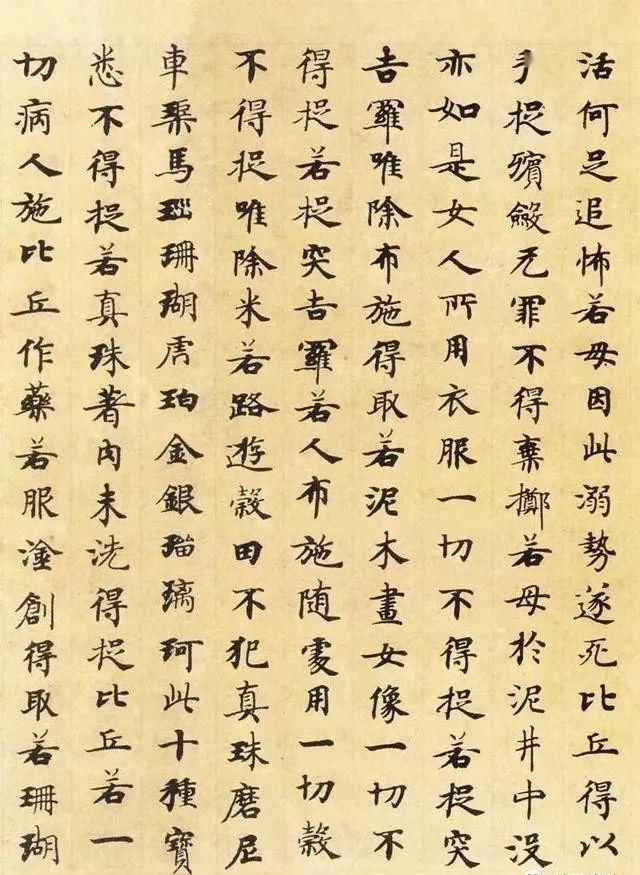 活何足追怖若母因此溺勢遂死比丘得以
手捉殯斂无罪不得棄擲若母於泥井中没
亦如是女人所用衣服一切不得捉若捉突
吉羅唯除布施得取若泥木畫女像一切不
得捉若捉突吉羅若人布施随處用一切穀
不得捉唯除米若路遊穀田不犯真珠磨尼
車渠馬瑙珊瑚虎珀金銀瑠璃珂此十種寶
悉不得捉若真珠著内未洗得捉比丘若一
切病人施比丘作藥若服塗創得取若珊瑚